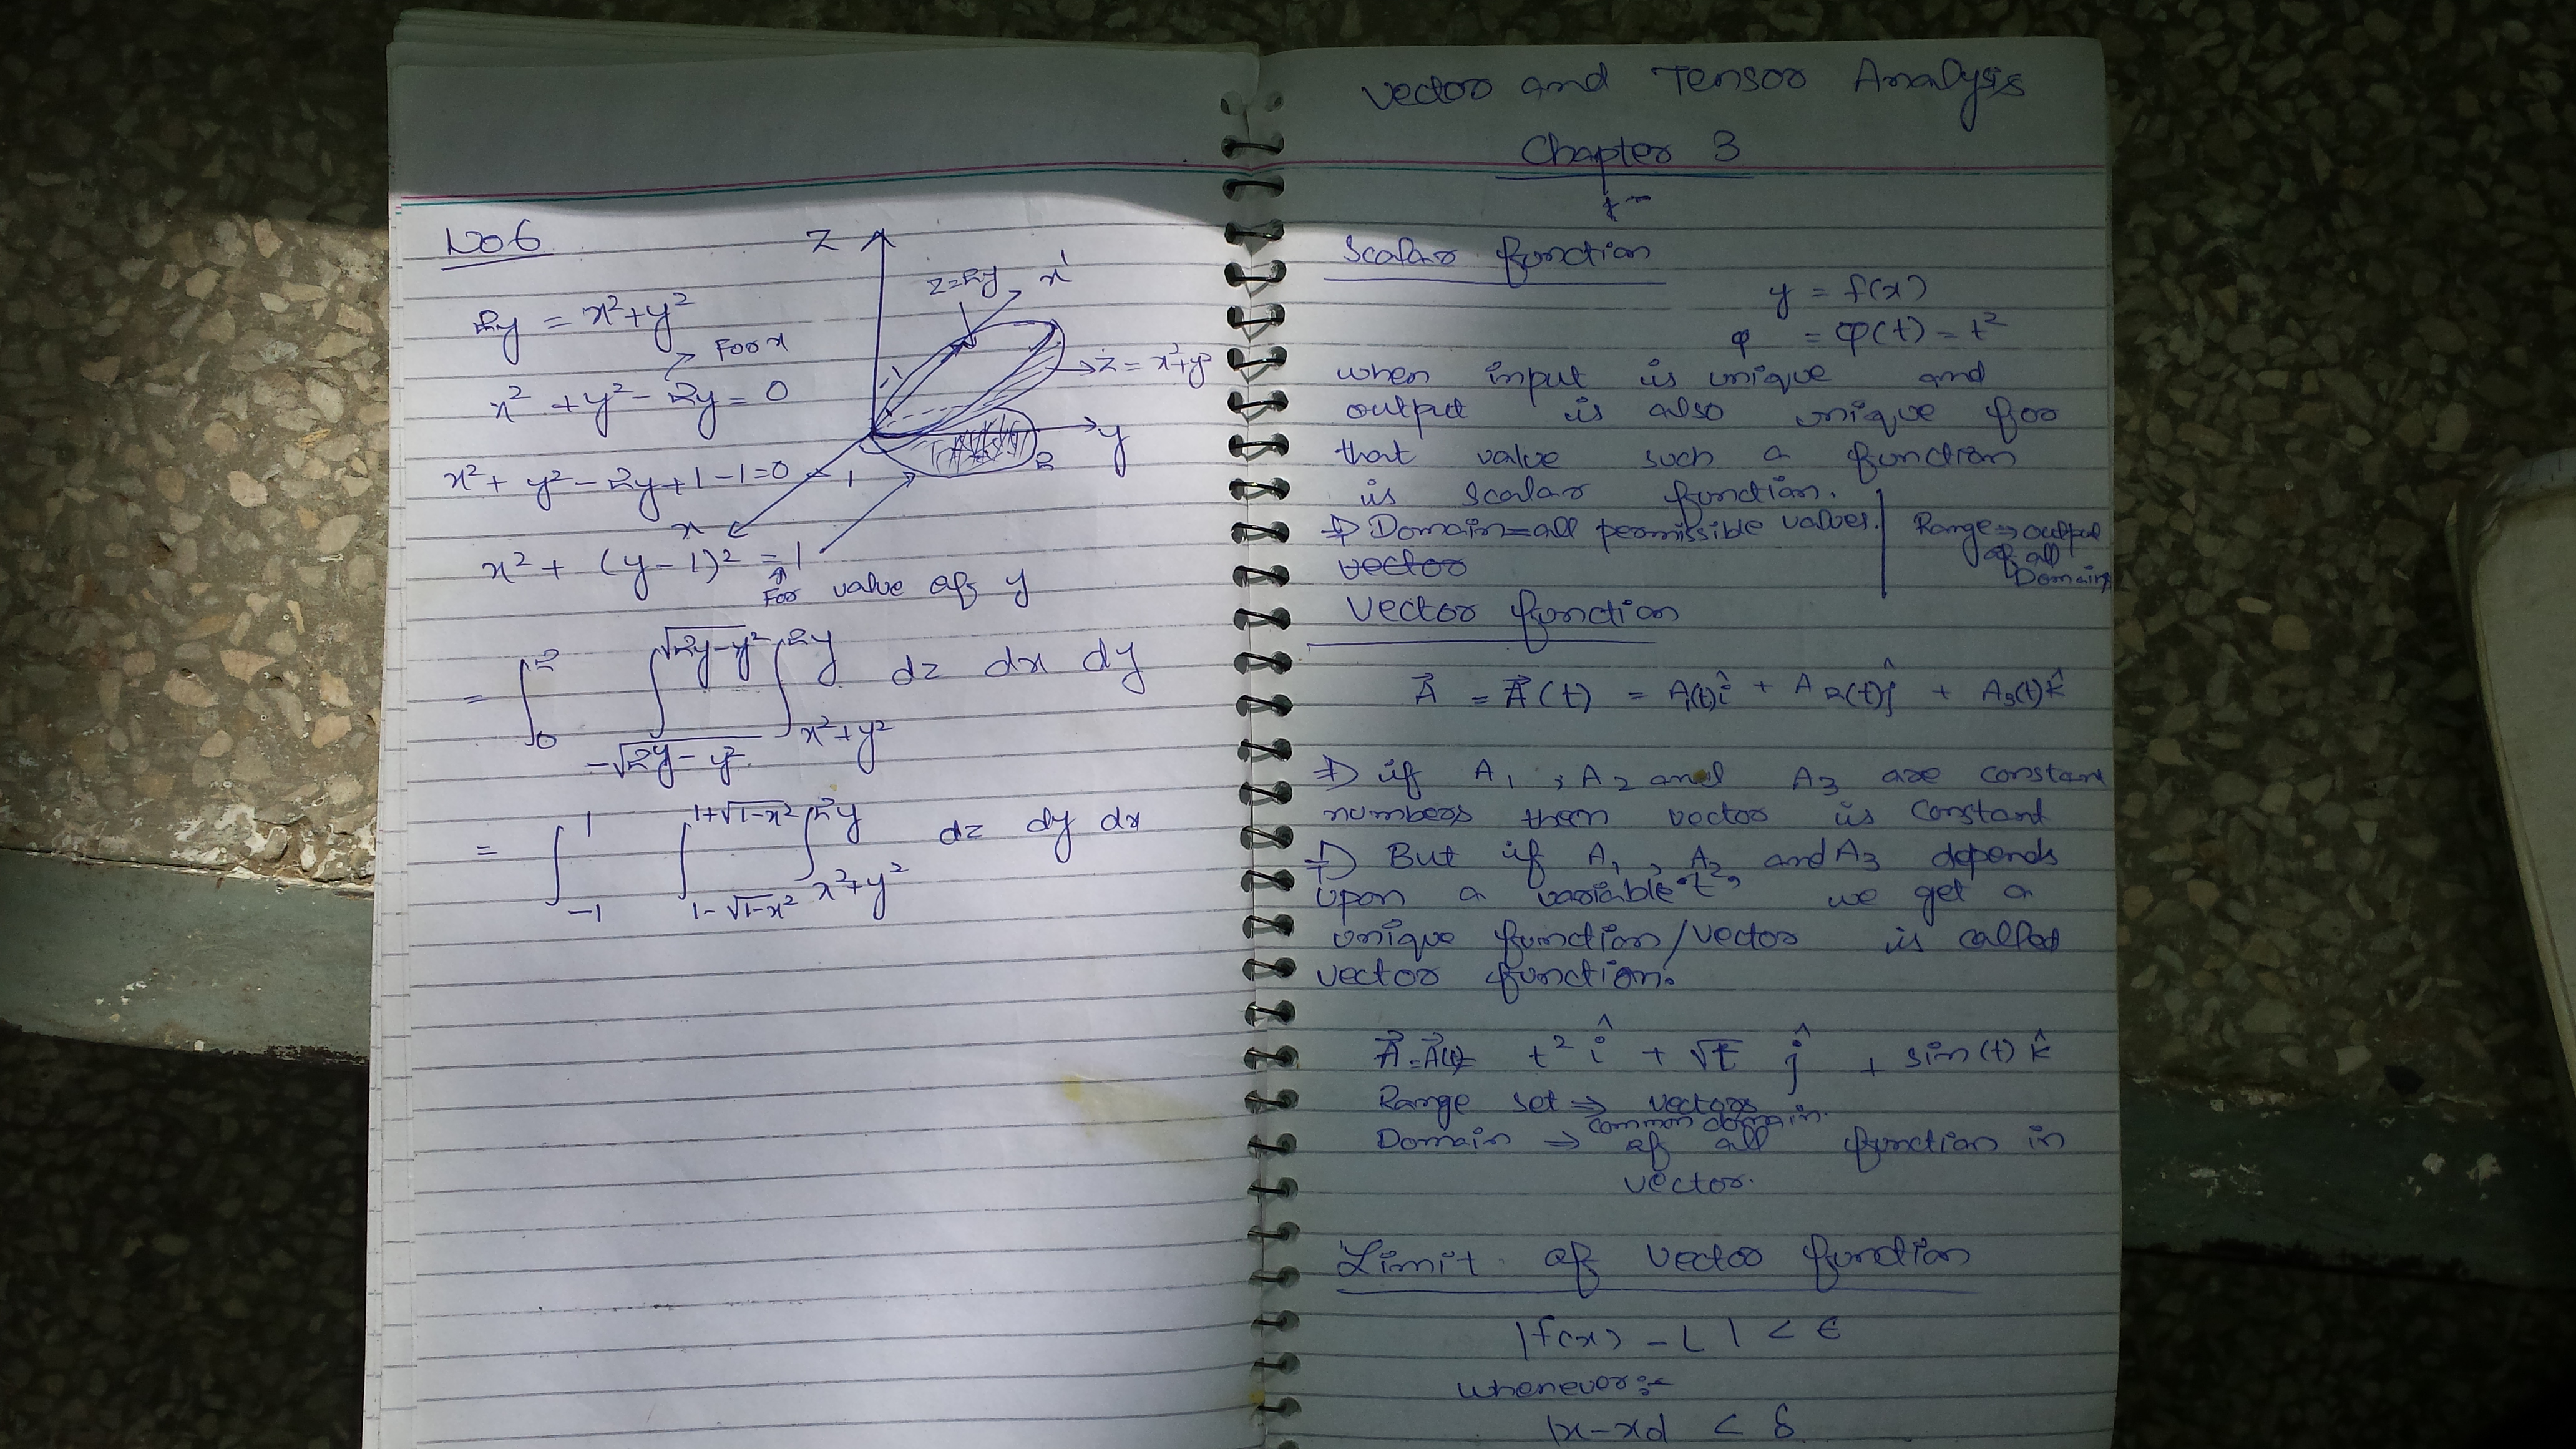 No 6
Z
z=2y
x'
2y = x²+y²
For x
z = x²+y²
x² + y² - 2y = 0
y
R
x² + y² - 2y + 1 - 1 = 0
x
x² + (y-1)² = 1
For value of y
= ∫₀² ∫_{-√2y-y²}^{√2y-y²} ∫_{x²+y²}^{2y} dz dx dy
= ∫_{-1}^{1} ∫_{1-√1-x²}^{1+√1-x²} ∫_{x²+y²}^{2y} dz dy dx
Vector and Tensor Analysis
Chapter 3
Scalar function
y = f(x)
φ = φ(t) = t²
when input is unique and
output is also unique for
that value such a function
is scalar function.
⇒ Domain = all permissible values.
Range ⇒ output
of all
Domain
vector
Vector function
A⃗ = A⃗(t) = A₁(t)î + A₂(t)ĵ + A₃(t)k̂
⇒ if A₁, A₂ and A₃ are constant
numbers then vector is constant
⇒ But if A₁, A₂ and A₃ depends
upon a variable 't', we get a
unique function/vector is called
vector function.
A⃗ = A⃗(t) = t² î + √t ĵ + sin(t) k̂
Range set ⇒ vectors
common domain
Domain ⇒ of all function in
vector.
Limit of vector function
|f(x) - L| < ε
whenever:-
|x-x₀| < δ